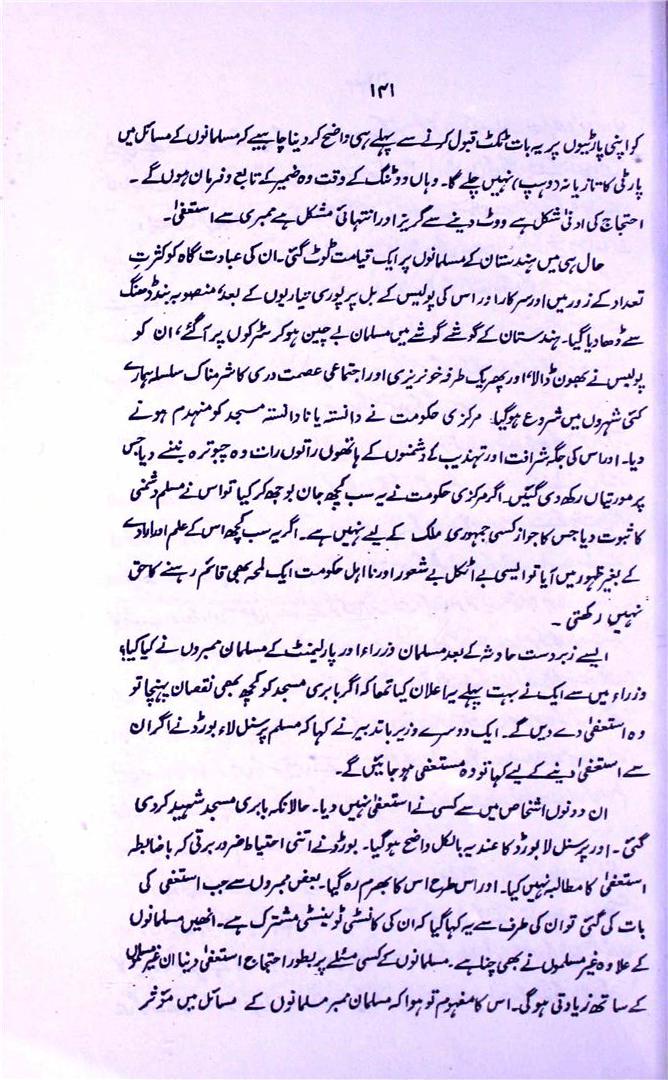 ۱۴۱
کو اپنی پارٹیوں پر یہ بات ٹکٹ قبول کرنے سے پہلے ہی واضح کر دینا چاہیے کہ مسلمانوں کے مسائل میں
پارٹی کا تازیانہ (وہپ) نہیں چلے گا۔ وہاں ووٹنگ کے وقت وہ ضمیر کے تابع و فرمان ہوں گے۔
احتجاج کی ادنیٰ شکل ہے ووٹ دینے سے گریز اور انتہائی مشکل ہے ممبری سے استعفیٰ۔
حال ہی میں ہندستان کے مسلمانوں پر ایک قیامت ٹوٹ گئی۔ ان کی عبادت گاہ کو کثرتِ
تعداد کے زور میں اور سرکار اور اس کی پولیس کے بل پر پوری تیاریوں کے بعد، منصوبہ بند ڈھنگ
سے ڈھا دیا گیا۔ ہندستان کے گوشے گوشے میں مسلمان بے چین ہو کر سڑکوں پر آ گئے، ان کو
پولیس نے بھون ڈالا، اور پھر یک طرفہ خونریزی اور اجتماعی عصمت دری کا شرمناک سلسلہ ہمارے
کئی شہروں میں شروع ہو گیا۔ مرکزی حکومت نے دانستہ یا نادانستہ مسجد کو منہدم ہونے
دیا۔ اور اس کی جگہ شرافت اور تہذیب کے دشمنوں کے ہاتھوں راتوں رات وہ چبوترہ بننے دیا جس
پر مورتیاں رکھ دی گئیں۔ اگر مرکزی حکومت نے یہ سب کچھ جان بوجھ کر کیا تو اس نے مسلم دشمنی
کا ثبوت دیا جس کا جواز کسی جمہوری ملک کے لیے نہیں ہے۔ اگر یہ سب کچھ اس کے علم اور ارادے
کے بغیر ظہور میں آیا تو ایسی بے اٹکل بے شعور اور نا اہل حکومت ایک لمحہ بھی قائم رہنے کا حق
نہیں رکھتی۔
ایسے زبردست حادثہ کے بعد مسلمان وزراء اور پارلیمنٹ کے مسلمان ممبروں نے کیا کیا؟
وزراء میں سے ایک نے بہت پہلے یہ اعلان کیا تھا کہ اگر بابری مسجد کو کچھ بھی نقصان پہنچا تو
وہ استعفیٰ دے دیں گے۔ ایک دوسرے وزیر باتدبیر نے کہا کہ مسلم پرسنل لاء بورڈ نے اگر ان
سے استعفیٰ دینے کے لیے کہا تو وہ مستعفی ہو جائیں گے۔
ان دونوں اشخاص میں سے کسی نے استعفیٰ نہیں دیا۔ حالانکہ بابری مسجد شہید کر دی
گئی۔ اور پرسنل لا بورڈ کا عندیہ بالکل واضح ہو گیا۔ بورڈ نے اتنی احتیاط ضرور برتی کہ باضابطہ
استعفیٰ کا مطالبہ نہیں کیا۔ اور اس طرح اس کا بھرم رہ گیا۔ بعض ممبروں سے جب استعفیٰ کی
بات کی گئی تو ان کی طرف سے یہ کہا گیا کہ ان کی کانسٹی ٹوینسی مشترک ہے۔ انھیں مسلمانوں
کے علاوہ غیر مسلموں نے بھی چنا ہے۔ مسلمانوں کے کسی مسئلے پر بطور احتجاج استعفیٰ دینا ان غیر مسلموں
کے ساتھ زیادتی ہوگی۔ اس کا مفہوم تو ہوا کہ مسلمان ممبر مسلمانوں کے مسائل میں مؤثر